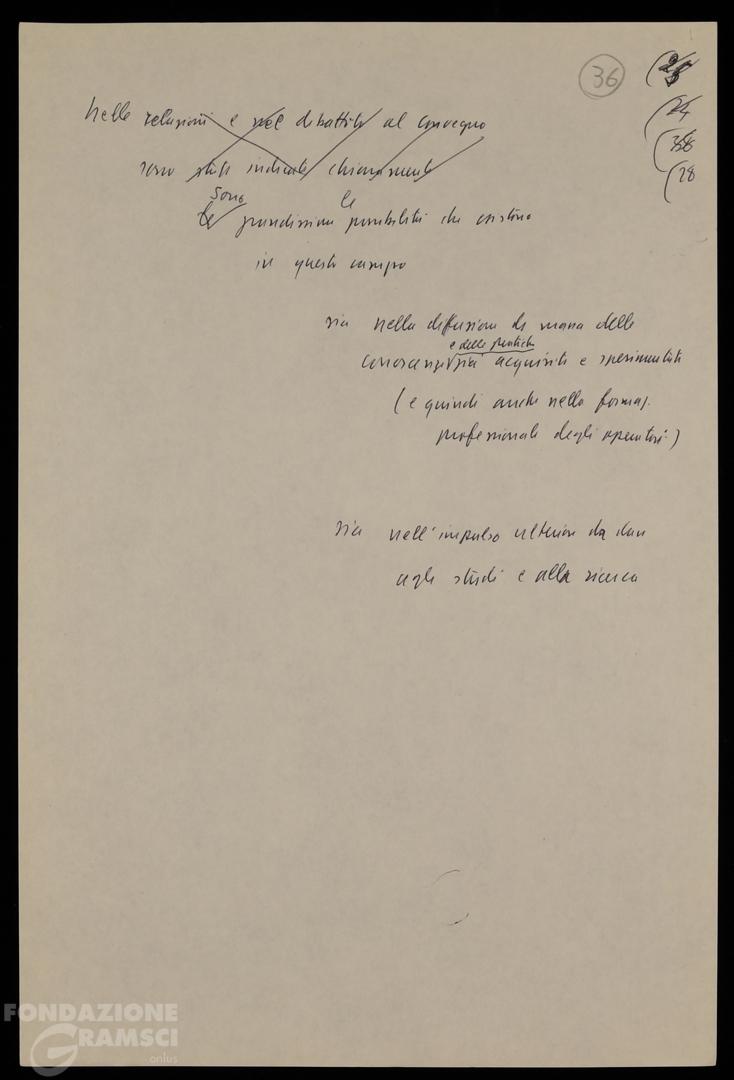 36
(25
(24
(38
(28
Nelle relazioni e nel dibattito al convegno
sono state indicate chiaramente
Sono le
Le grandissime possibilità che esistono
in questo campo
sia nella diffusione di massa delle
e delle pratiche
conoscenze già acquisite e sperimentate
(e quindi anche nella formaz.
professionale degli operatori)
sia nell'impulso ulteriore da dare
agli studi e alla ricerca
FONDAZIONE
GRAMSCI
onlus